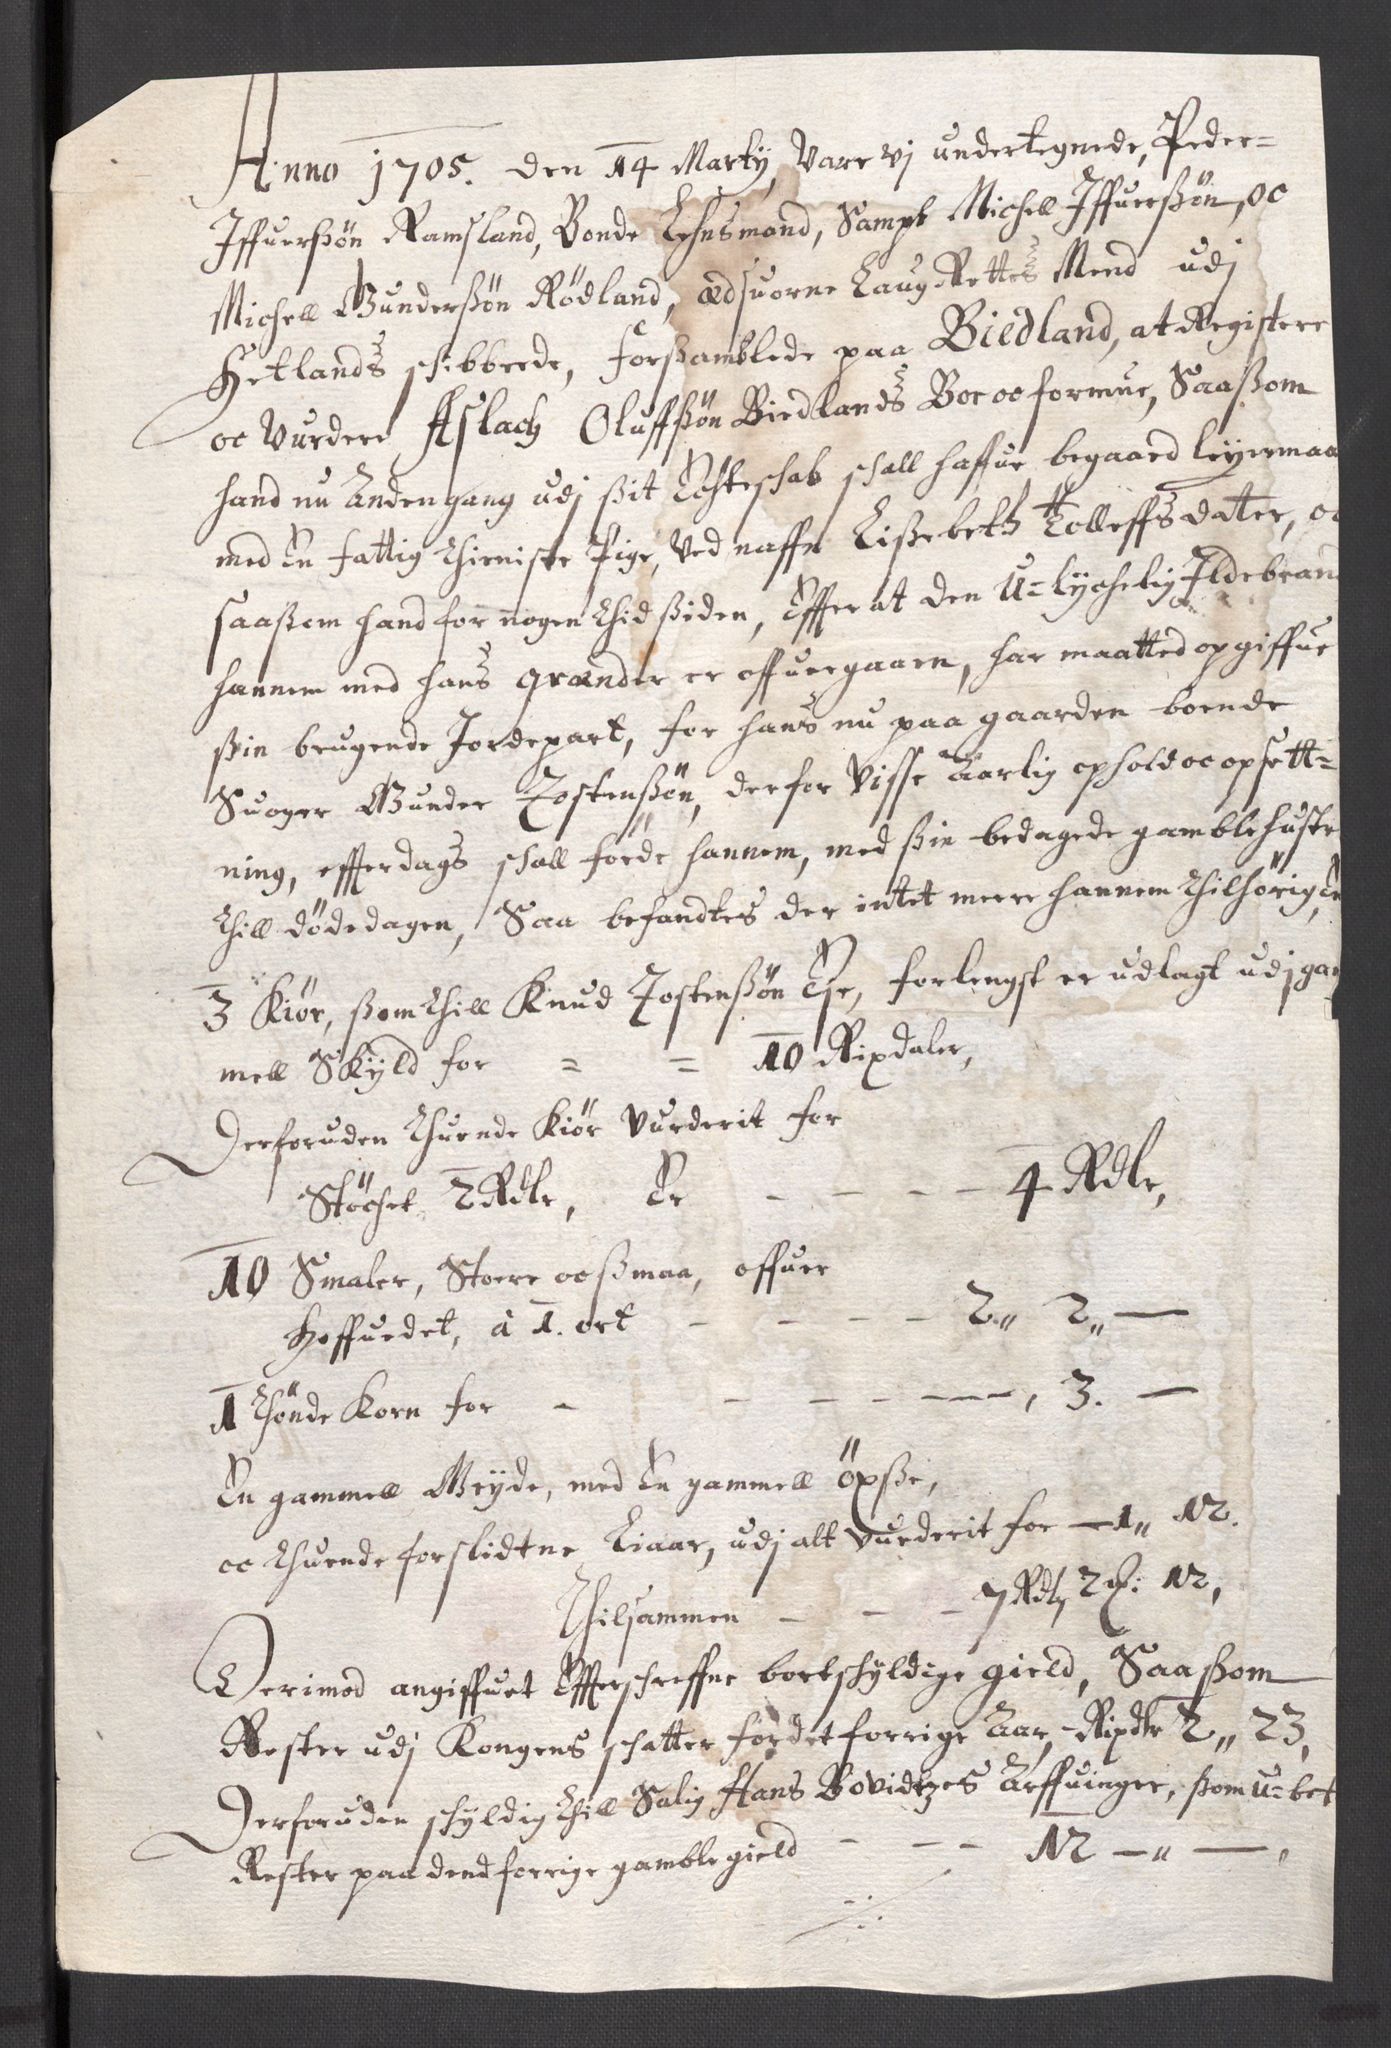 Anno 1705. den 14 Marty, Vare vj undertegnede, Peder=
Iffuerßön Ramsland, Bonde Lehnsmand, Sampt Michell Iffuerßön, oc
Michell Gunderßön Rödland, ædsuorne LaugRettes Mend udj
Hetlands schibbrede, forßamblede paa Biedland, at Registere
oc Vurdere Aslach Oluffßön Biedlands Boe oc formue, Saaßom
hand nu Anden gang udj ßit Echteschab schall haffue begaaed leyermaa
med En fattig thieniste Pige, Ved naffn Lißebeth Tolleffs dater, oc
saaßom hand for nogen thid ßiden, Effter at den U=lychelig Ildebrand
hannem med hans grander er offuergaaen, har maatted opgiffue
ßin brugende Jordepart, for hans nu paa gaarden boende
Suoger Gunder Jostenßön, derfor Visse Aarlig ophold oc opsett=
ning, effterdags schall föede hannem, med ßin bedagede gamble hustr
thill dödedagen, Saa befandtes der intet meere hannem thilhörig, En
3 Kiör, ßom thill Knud Jostenßön Eje, forlengst er udlagt udj gam
mell Skyld for = = 10 Rixdaler,
Derforuden thuende Kiör Vurderit for
Støchet 2 Rdlr, Er - - - - 4 Rdlr,
10 Smaler, Stoere oc ßmaa, offuer
Hoffuedet, à 1. ort - - - - 2,, 2,, —
1 thönde Korn for - - - - — , 3. —
En gammell Gryde, med En gammell öxße,
oc thuende forslidtne Liaar, udj alt Vurderit for — 1,, 12.
Thilsammen - - - 7 Rdlr 2 ℔: 12,
Derimod angiffuet Effterschreffne bortschyldige gield, Saaßom
Rester udj Kongens schatter for det forrige Aar, - Rixdlr 2,, 23,
Derforuden schyldig thill Salig Hans Bovidtzes Arffuinger, ßom U=bet
Rester paa dend forrige gamble gield - - - 12 —,, — ,